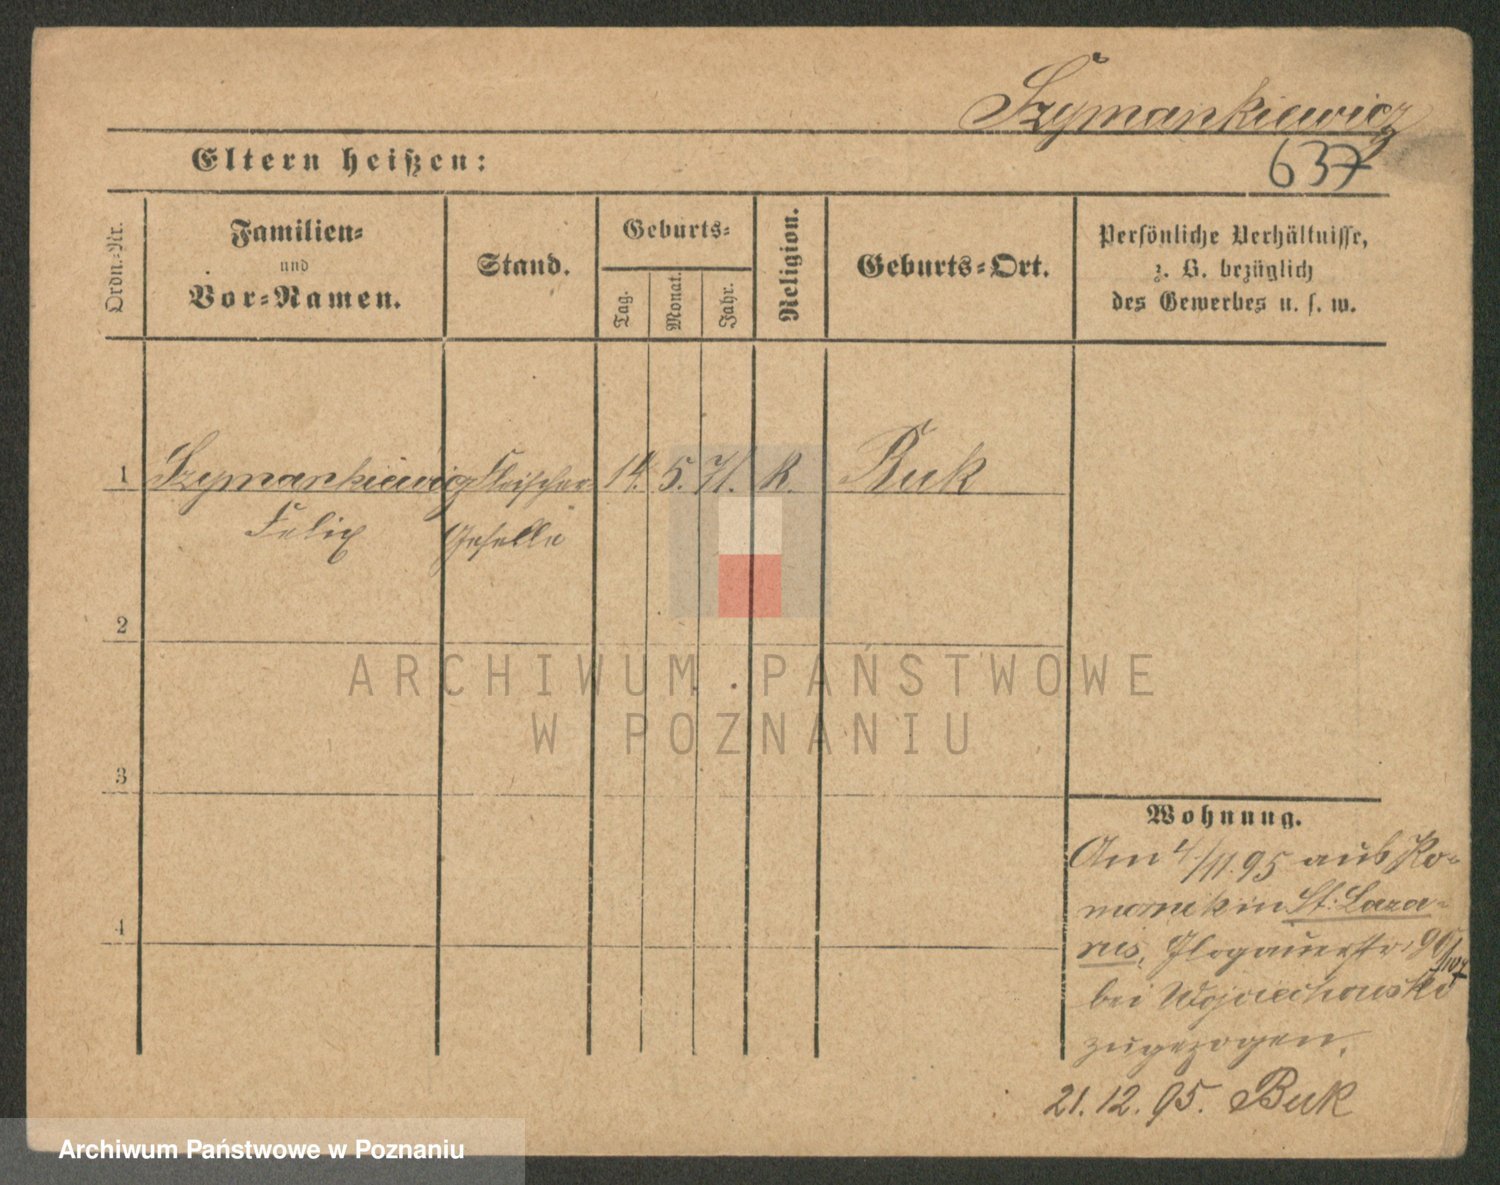 Szymankiewicz
637
Eltern heißen:
Ordn.-Nr.
Familien-
und
Vor-Namen.
Stand.
Geburts-
Tag.
Monat.
Jahr.
Religion.
Geburts-Ort.
Persönliche Verhältnisse,
z. B. bezüglich
des Gewerbes u. s. w.
1 Szymankiewicz Fleischer- 14. 5. 71. K. Buk
Felix Geselle
2
3
4
ARCHIWUM PAŃSTWOWE
W POZNANIU
Wohnung.
Am 4/11.95 aus Ko-
mornik in St. Laza-
rus, Glogauerstr.
bei Wojciechowski
zugezogen.
21.12.95. Buk
Archiwum Państwowe w Poznaniu